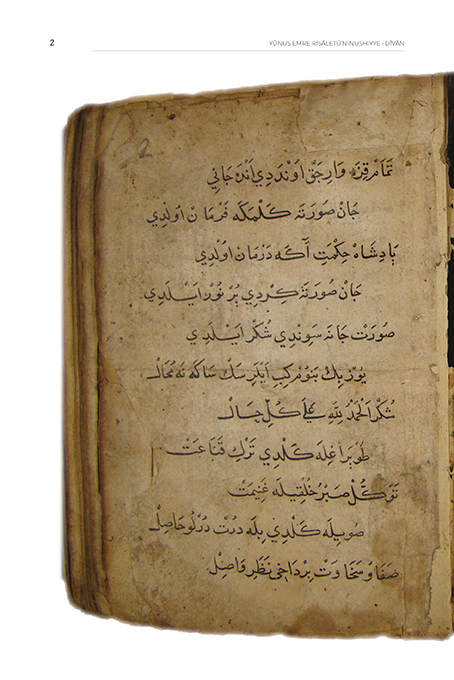 2
YÛNUS EMRE RİSÂLETÜ'N-NUSHİYYE - DÎVÂN
2
تمام قزه وارجق اوندردي انده جاني
جان صورته كلمكه فرمان اولدي
پادشاه حكمت آكه درمان اولدي
جان صورته كردي پر نور ايلدي
صورت جانه سوندي شكر ايلدي
يوز بيك بنوم كبي ايلرسك ساكه نه محال
شكر الحمد لله علي كل حال
طوبراغله كلدي ترك قناعت
توكل صبر خلقيله غنيمت
صويله كلدي بله درت درلو حاصل
صفا و سخاوت بر داخي نظر واصل